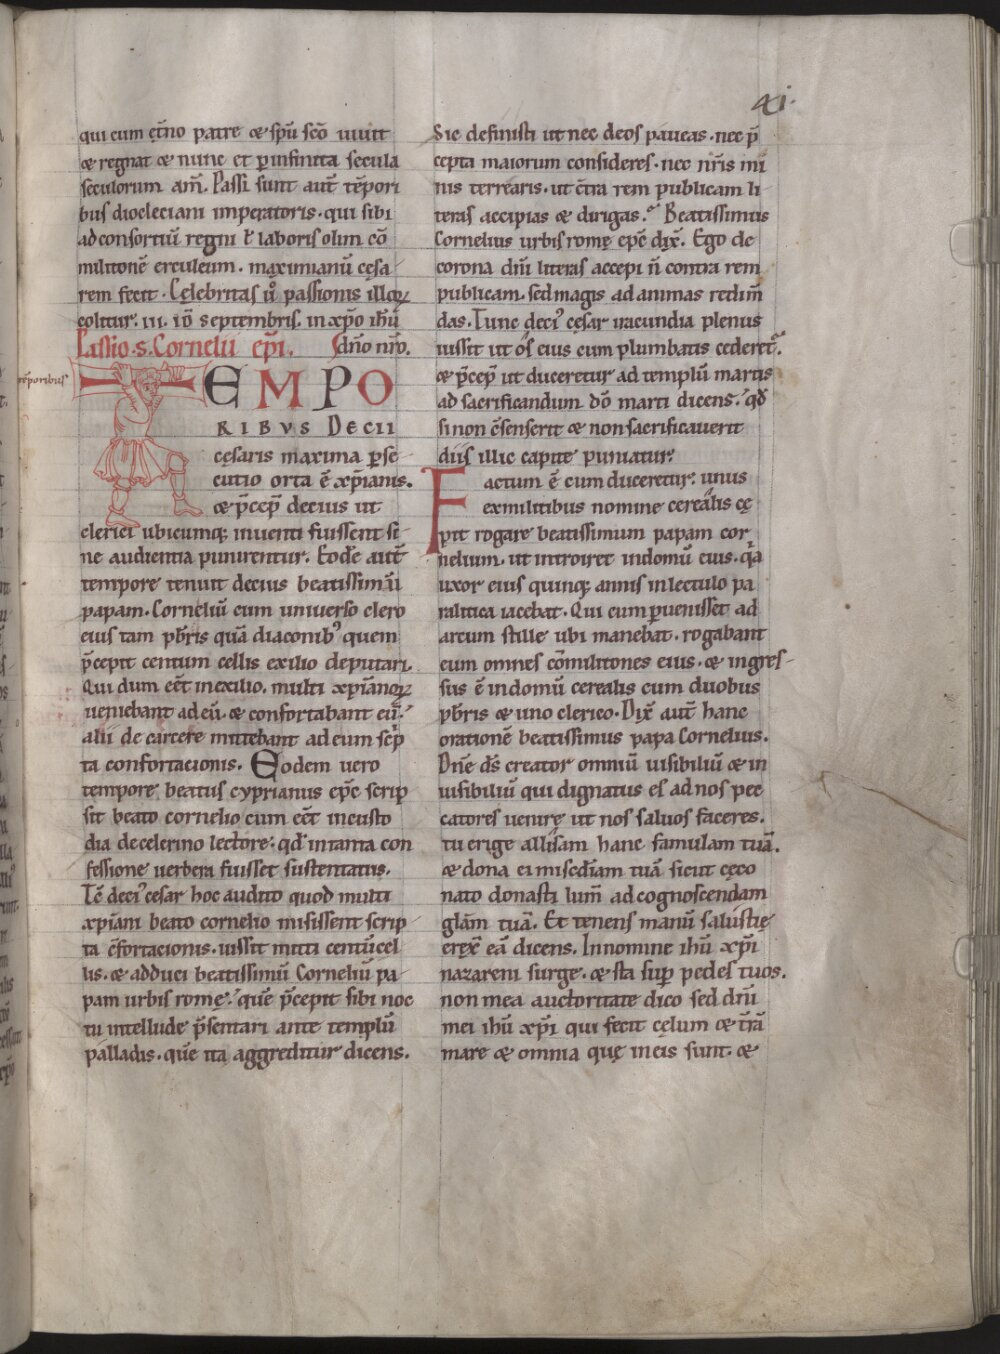 41.
qui cum et̄no patre & sp̄u sc̄o uiuit
& regnat & nunc et p̲ infinita secula
seculorum am̄. Passi sunt aut̄ tēpori
bus diocleciani imperatoris. qui sibi
ad consortiū regni ł laboris olim cō
militonē erculeum. maximianū cęsa
rem fecit. Cęlebritas ů passionis illoꝝ
colitur. iii. id̄ septembris. in xp̄o ihū
Passio. s. Cornelii ep̄i. dn̄o nr̄o.
tēporibus
TEMPO
RIBVS DECII
cęsaris maxima p̲se
cutio orta ē xp̄ianis.
& p̄cep̄ decius ut
clerici ubicumq; inuenti fuissent si
ne audientia punirentur. Eodē aut̄
tempore tenuit decius beatissimū
papam. Corneliū cum uniuerso clero
eius tam pb̄ris quā diaconibꝰ quem
p̄cepit centum cellis exilio deputari.
Qui dum eēt in exilio. multi xp̄ianoꝝ
ueniebant ad eū. & confortabant eū.
alii de carcere mittebant ad eum sc̄p
ta confortacionis. Eodem uero
tempore beatus cyprianus ep̄c scrip
sit beato cornelio cum eēt in custo
dia de celerino lectore: qd̄ in tanta con
fessione uerbera fuisset sustentatus.
Tc̄ deciꝰ cesar hoc audito quod multi
xp̄iani beato cornelio misissent scrip
ta c̄fortacionis. iussit mitti centūcel
lis. & adduci beatissimū Corneliū pa
pam urbis romę. quē p̄cepit sibi noc
tu intellude p̄sentari ante templū
palladis. quē ita aggreditur dicens.
Sic definisti ut nec deos paueas. nec p̄
cepta maiorum consideres. nec nr̄is mi
nis terrearis. ut c̄tra rem publicam li
teras accipias & dirigas. Beatissimus
Cornelius urbis romę ep̄c dix̄. Ego de
corona dn̄i literas accepi n̄ contra rem
publicam. sed magis ad animas redim̄
das. Tunc deciꝰ cęsar iracundia plenus
iussit ut os eius cum plumbatis cederet̃.
& p̄cep̄ ut duceretur ad templū martis
ad sacrificandum dō marti dicens. qd̄
si non c̄senserit & non sacrificauerit
diis illic capite puniatur.
Factum ē cum duceretur: unus
ex militibus nomine cerealis cę
pit rogare beatissimum papam cor
nelium. ut introiret in domū eius. q̇a
uxor eius quinq; annis in lectulo pa
ralitica iacebat. Qui cum p̲uenisset ad
arcum stille ubi manebat. rogabant
eum omnes cōmilitones eius. & ingres
sus ē in domū cerealis cum duobus
pb̄ris & uno clerico. Dix̄ aut̄ hanc
orationē beatissimus papa Cornelius.
Dn̄e ds̄ creator omniū uisibiliū & in
uisibiliū qui dignatus es ad nos pec
catores uenire ut nos saluos faceres.
tu erige allisam hanc famulam tuā.
& dona ei misc̄diam tuā sicut cęco
nato donasti lum̄ ad cognoscendam
glām tuā. Et tenens manū salustię
erex̄ eā dicens. In nomine ihū xp̄i
nazareni surge. & sta sup̲ pedes tuos.
non mea auctoritate dico sed dn̄i
mei ihū xp̄i qui fecit cęlum & t̄rā
mare & omnia quę in eis sunt. &